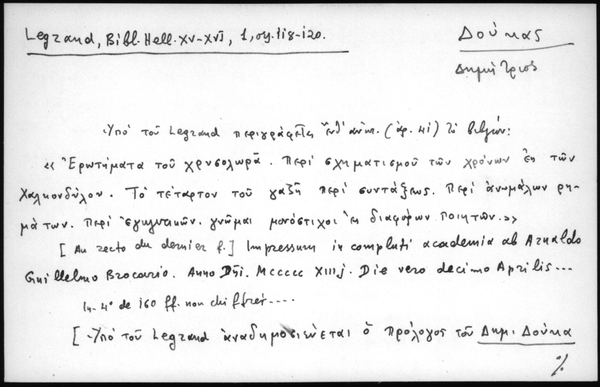 Legrand, Bibl. Hell. XV-XVI, 1, σχ. 118-120.
Δούκας
Δημήτριος
Ὑπὸ τοῦ Legrand περιγράφεται (ἀρ. 41) τὸ βιβλίον:
«Ἐρωτήματα τοῦ χρυσολωρᾶ. Περὶ σχηματισμοῦ τῶν χρόνων ἐκ τῶν
Χαλκονδύλου. Τὸ τέταρτον τοῦ γαζῆ περὶ συντάξεως. Περὶ ἀνωμάλων ρη-
μάτων. Περὶ ἐγκλιτικῶν. γνῶμαι μονόστιχοι ἐκ διαφόρων ποιητῶν.»
[Au recto du dernier f.] Impressum in compluti academia ab Arnaldo
Guillelmo Brocario. Anno Dñi. Mccccc XIIIj. Die vero decimo Aprilis...
In-4° de 160 ff. non chiffrés....
[Ὑπὸ τοῦ Legrand ἀναδημοσιεύεται ὁ πρόλογος τοῦ Δημ. Δούκα
%